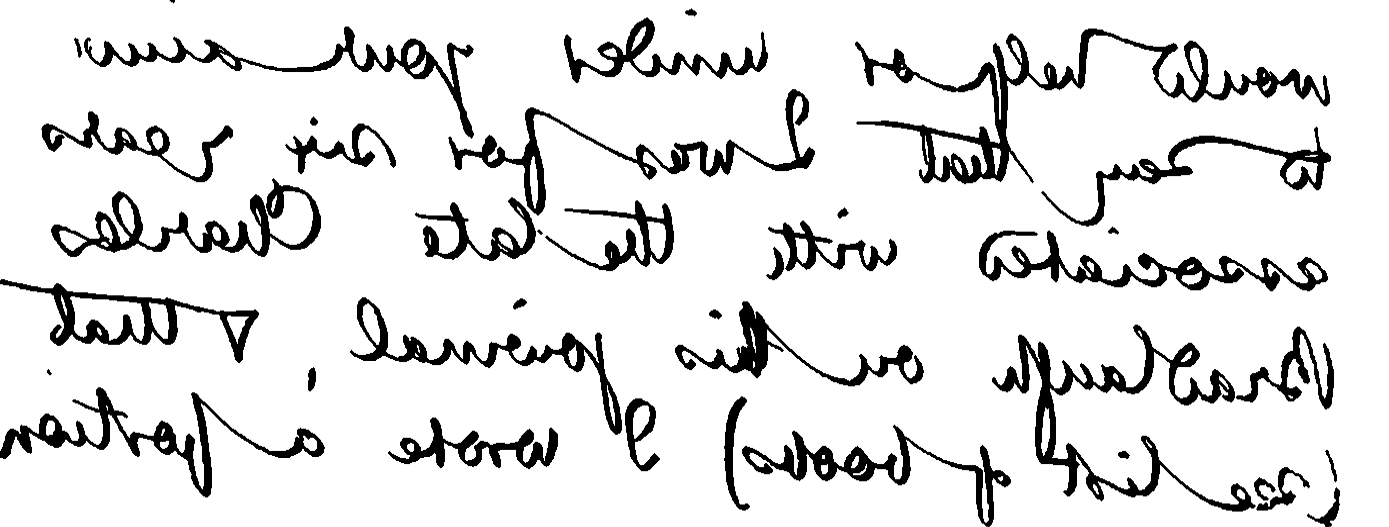 would help or hinder your aim"
to say that I was for six years
associated with the late Charles
Bradlaugh on his journal, & that
(see list of books) I wrote a portion